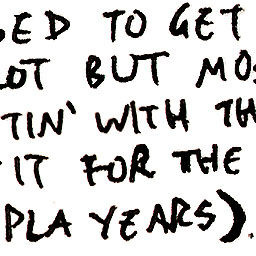 ED TO GET
OT BUT MOS
TIN' WITH TH
IT FOR THE
PLA YEARS).